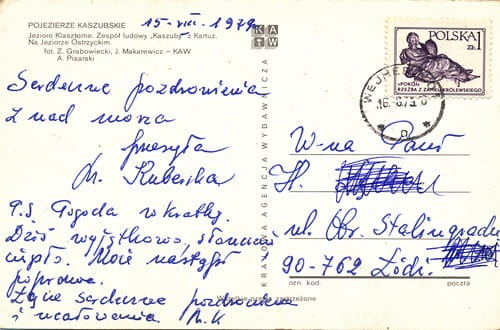 POJEZIERZE KASZUBSKIE
Jezioro Klasztorne. Zespół ludowy „Kaszuby" z Kartuz.
Na Jeziorze Ostrzyckim
fot. Z. Grabowiecki, J. Makarewicz — KAW
A. Pisarski
15-VIII. 1979
KAW
KRAJOWA AGENCJA WYDAWNICZA
POLSKA
Zł 1
„SPOKÓJ"
RZEŹBA Z ZAMKU KRÓLEWSKIEGO
WEJHE
16.-8.79.
Serdeczne pozdrowienia
z nad morza
przesyła
M. Kuberska
P.S. Pogoda w kratkę.
Dziś wyjątkowo, słonecznie
ciepło. Może nastąpi
poprawa.
Łączę serdeczne pozdrowienia
i ucałowania M.K
W-na Pani
H.
ul. Obr. Stalingradu
90-762 Łódź
ozn. kod. poczta
Wszelkie prawa zastrzeżone